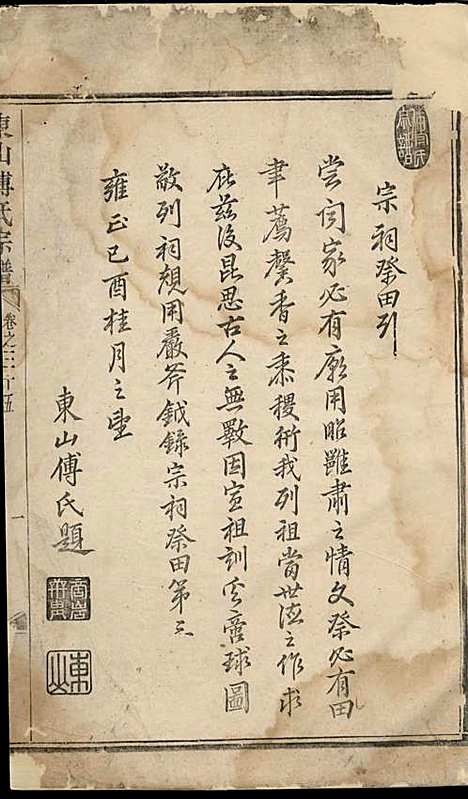 宗祠祭田引
嘗闻家必有廟用昭雝肅之情文祭必有田
聿薦馨香之黍稷衎我列祖當世德之作求
庇茲後昆思古人之無斁因宣祖訓奚啻球圖
敬列祠規用嚴斧鉞錄宗祠祭田第三
雍正己酉桂月之望
東山傅氏題
東山
東山傅氏宗譜
卷之三百五
一